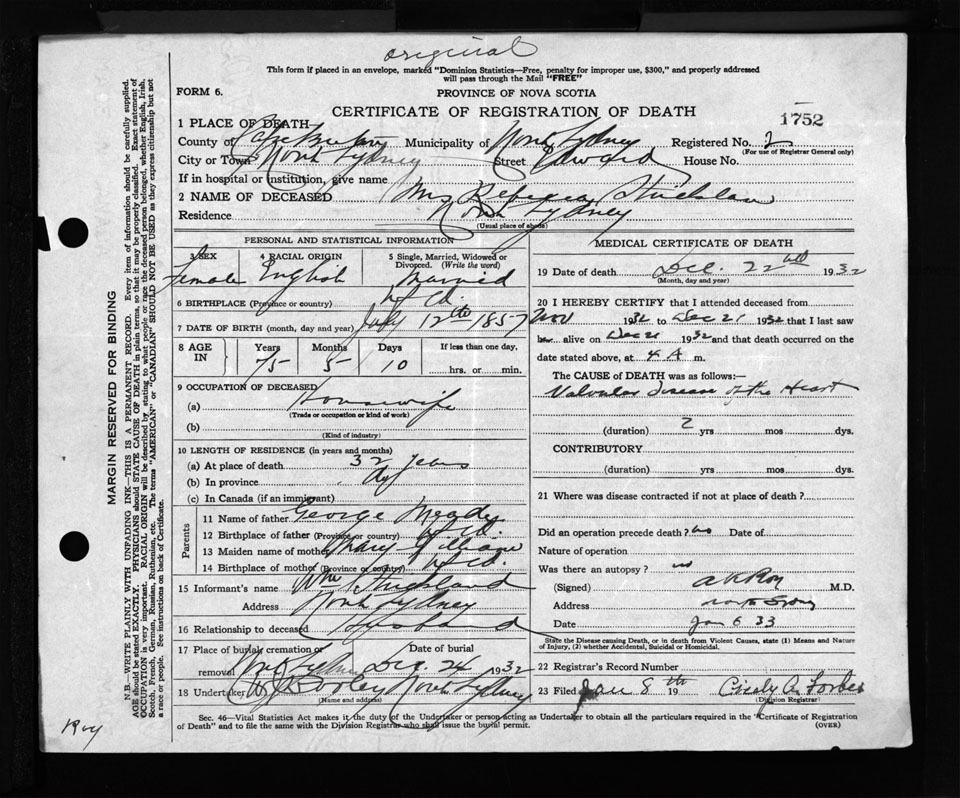 original
This form if placed in an envelope, marked "Dominion Statistics—Free, penalty for improper use, $300," and properly addressed
will pass through the Mail "FREE"
FORM 6.
PROVINCE OF NOVA SCOTIA
CERTIFICATE OF REGISTRATION OF DEATH
1752
1 PLACE OF DEATH
County of Cape Breton Municipality of North Sydney Registered No. 2
(For use of Registrar General only)
City or Town North Sydney Street Edward House No.
If in hospital or institution, give name
2 NAME OF DECEASED Mrs Strickland
Residence North Sydney
(Usual place of abode)
PERSONAL AND STATISTICAL INFORMATION
3 SEX 4 RACIAL ORIGIN 5 Single, Married, Widowed or Divorced. (Write the word)
Female English Married
6 BIRTHPLACE (Province or country) Nfld.
7 DATE OF BIRTH (month, day and year) July 12th 1857
8 AGE IN Years Months Days If less than one day.
75 5 10 hrs. or min.
9 OCCUPATION OF DECEASED
(a) Housewife
(Trade or occupation or kind of work)
(b)
(Kind of industry)
10 LENGTH OF RESIDENCE (in years and months)
(a) At place of death 32 years
(b) In province
(c) In Canada (if an immigrant)
Parents
11 Name of father George
12 Birthplace of father (Province or country) Nfld.
13 Maiden name of mother Mary
14 Birthplace of mother (Province or country) Nfld.
15 Informant's name Wm Strickland
Address North Sydney
16 Relationship to deceased Husband
17 Place of burial cremation or removal Date of burial
North Sydney Dec. 24 1932
18 Undertaker North Sydney
(Name and address)
MEDICAL CERTIFICATE OF DEATH
19 Date of death Dec. 22nd 1932
(Month, day and year)
20 I HEREBY CERTIFY that I attended deceased from
Nov 1932 to Dec 21 1932 that I last saw
h alive on Dec 21 1932 and that death occurred on the
date stated above, at 4 A m.
The CAUSE of DEATH was as follows:—
Valvular disease of the Heart
(duration) 2 yrs mos dys.
CONTRIBUTORY
(duration) yrs mos dys.
21 Where was disease contracted if not at place of death?
Did an operation precede death? no Date of
Nature of operation
Was there an autopsy? no
(Signed) A K Roy M.D.
Address North Sydney
Date Jan 6 33
State the Disease causing Death, or in death from Violent Causes, state (1) Means and Nature
of Injury, (2) whether Accidental, Suicidal or Homicidal.
22 Registrar's Record Number
23 Filed Jan 8th 19 Forbes
(Division Registrar)
Sec. 46—Vital Statistics Act makes it the duty of the Undertaker or person acting as Undertaker to obtain all the particulars required in the "Certificate of Registration
of Death" and to file the same with the Division Registrar who shall issue the burial permit.
(OVER)
MARGIN RESERVED FOR BINDING
N.B.—WRITE PLAINLY WITH UNFADING INK—THIS IS A PERMANENT RECORD. Every item of information should be carefully supplied.
AGE should be stated EXACTLY. PHYSICIANS should STATE CAUSE OF DEATH in plain terms, so that it may be properly classified. Exact statement of
OCCUPATION is very important. RACIAL ORIGIN will be described by stating to what people or race the deceased person belonged, whether English, Irish,
Scotch, French, German, Russian, Ruthenian, etc. The terms "AMERICAN" or "CANADIAN" SHOULD NOT BE USED as they express citizenship but not
a race or people. See instructions on back of Certificate.
Roy